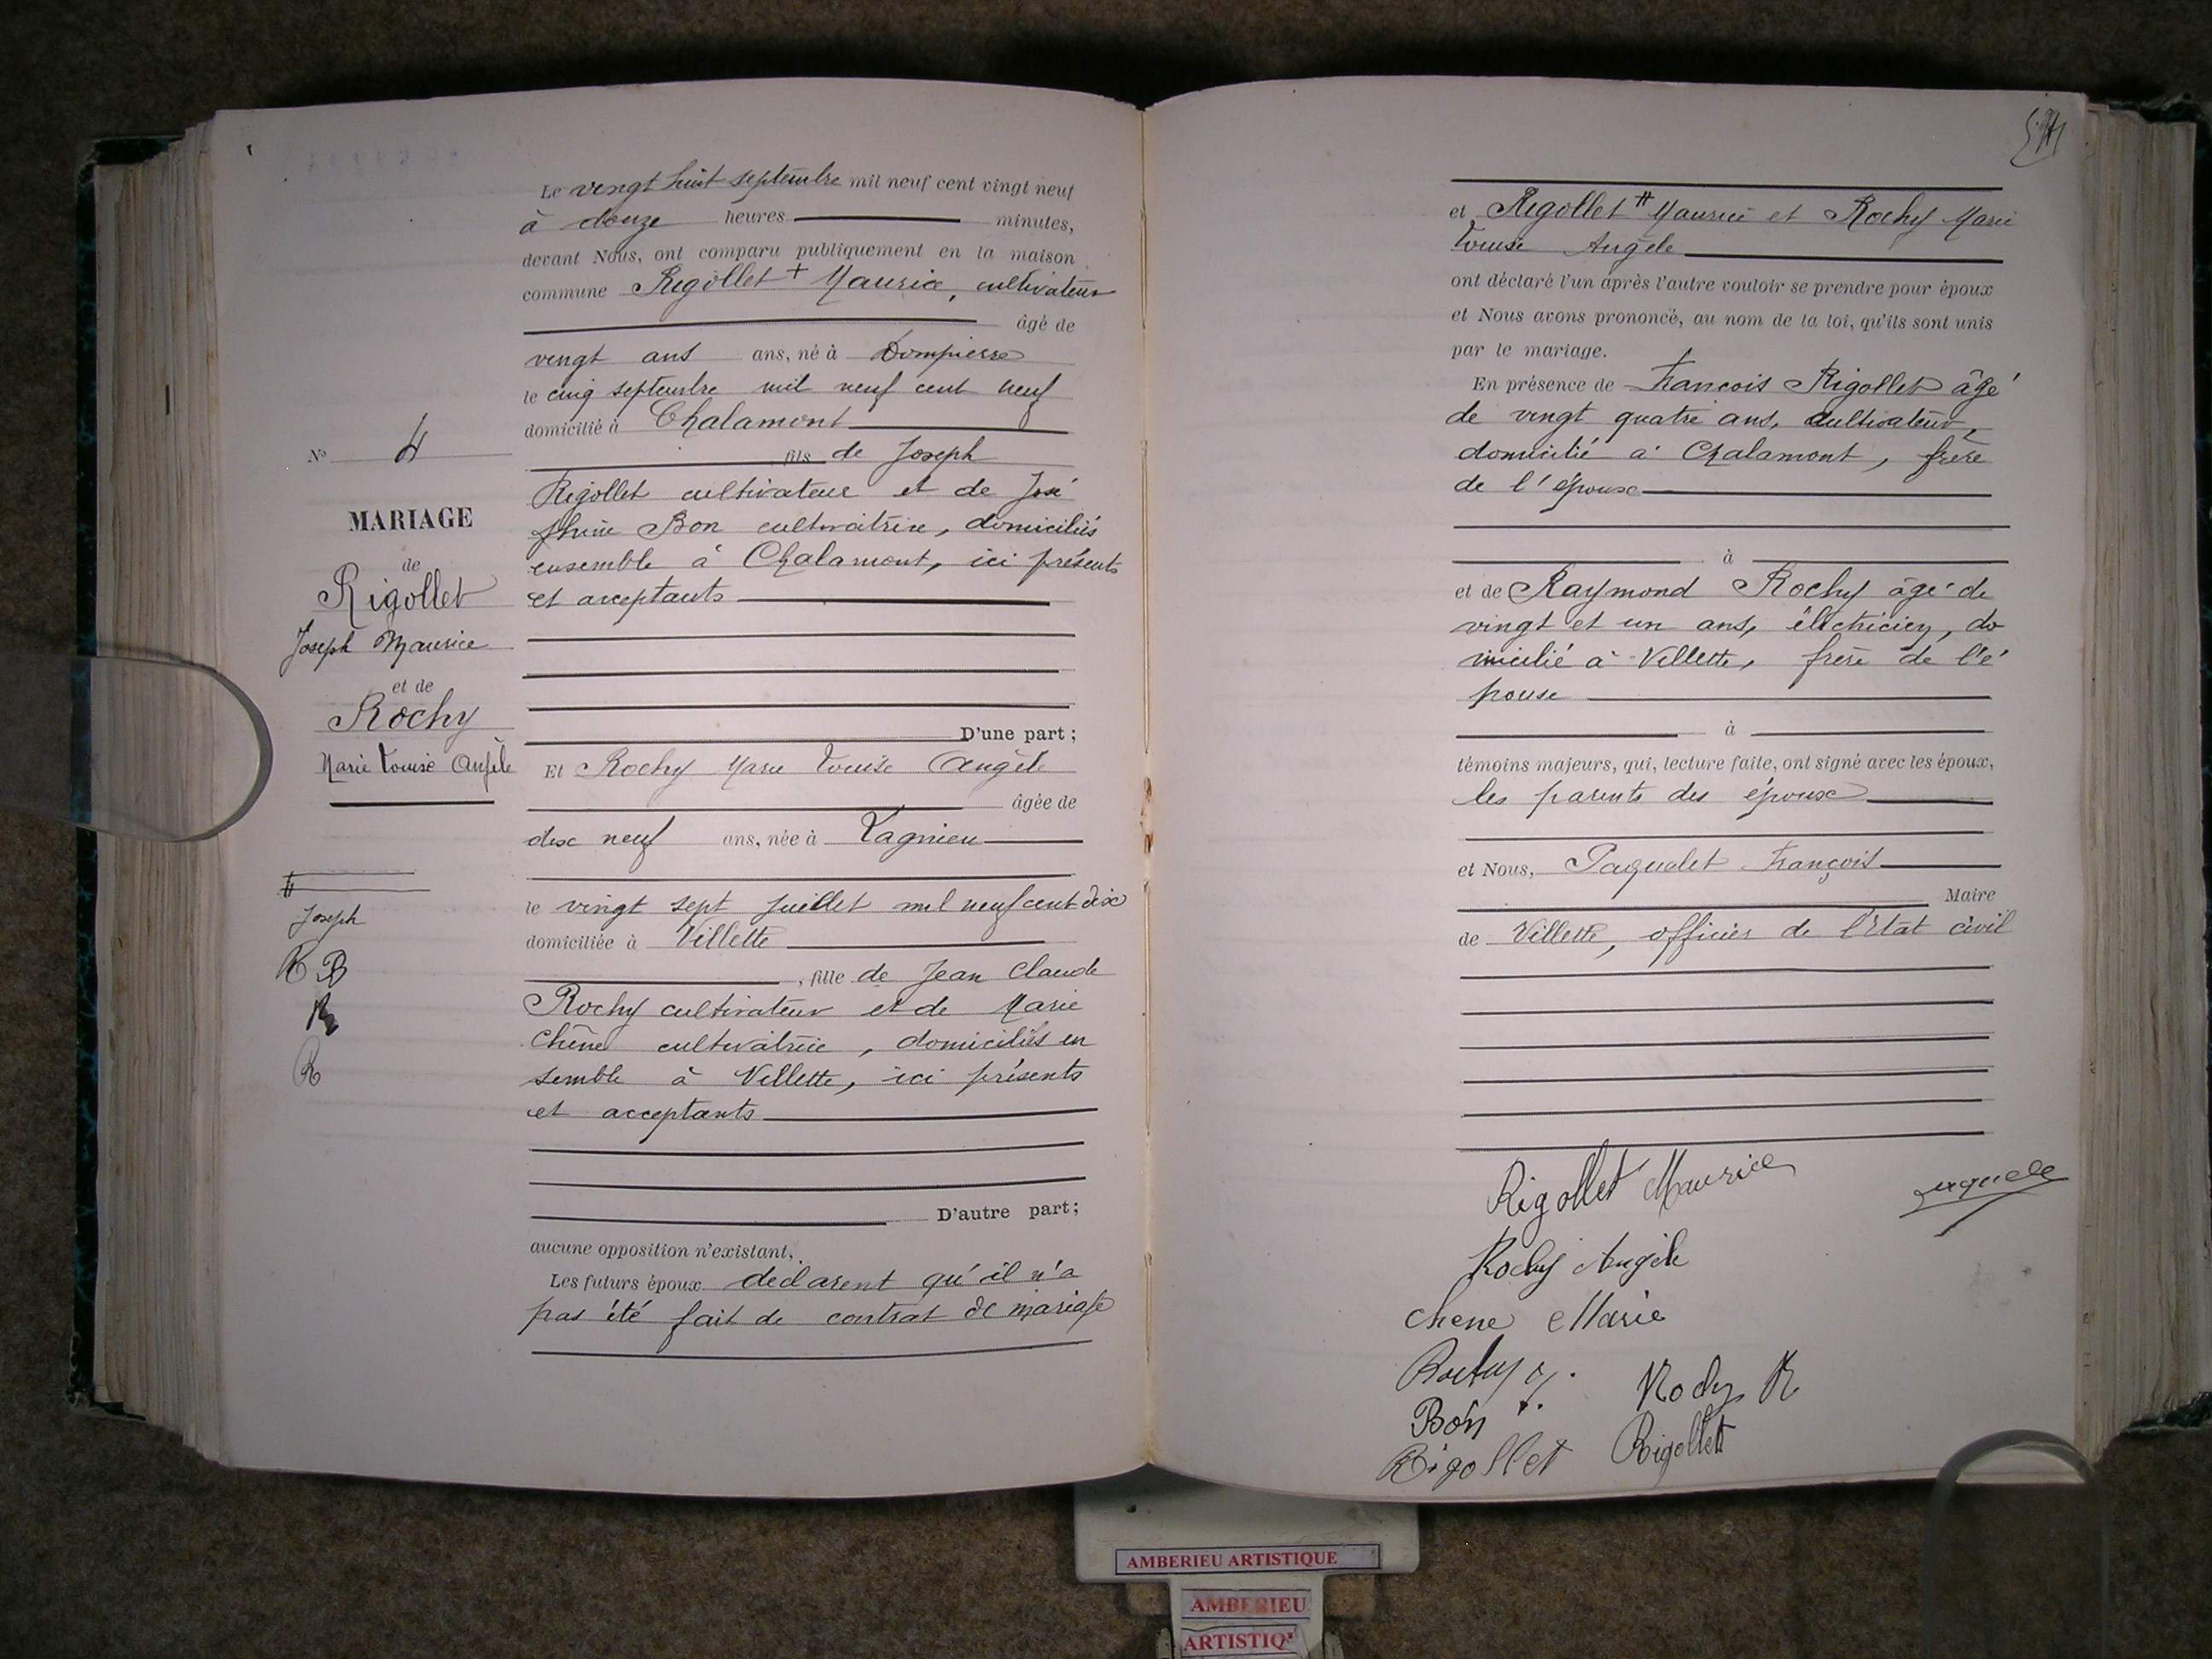 Le vingt huit septembre mil neuf cent vingt neuf
à douze heures minutes,
devant Nous, ont comparu publiquement en la maison
commune Rigollet + Maurice, cultivateur
âgé de
vingt ans ans, né à Dompierre
le cinq septembre mil neuf cent neuf
domicilié à Chalamont
fils de Joseph
Rigollet cultivateur et de José
phine Bon cultivatrice, domiciliés
ensemble à Chalamont, ici présents
et acceptants
D'une part ;
Et Rochy Marie Louise Angèle
âgée de
dix neuf ans, née à Lagnieu
le vingt sept juillet mil neuf cent dix
domiciliée à Villette
, fille de Jean Claude
Rochy cultivateur et de Marie
Chêne cultivatrice, domiciliés en
semble à Villette, ici présents
et acceptants
D'autre part ;
aucune opposition n'existant,
Les futurs époux déclarent qu'il n'a
pas été fait de contrat de mariage
N° 4
MARIAGE
de
Rigollet
Joseph Maurice
et de
Rochy
Marie Louise Angèle
#
Joseph
R B
R
R
et Rigollet # Maurice et Rochy Marie
Louise Angèle
ont déclaré l'un après l'autre vouloir se prendre pour époux
et Nous avons prononcé, au nom de la loi, qu'ils sont unis
par le mariage.
En présence de François Rigollet âgé
de vingt quatre ans, cultivateur,
domicilié à Chalamont, frère
de l'épouse
à
et de Raymond Rochy âgé de
vingt et un ans, électricien, do
micilié à Villette, frère de l'é
pouse
à
témoins majeurs, qui, lecture faite, ont signé avec les époux,
les parents des époux
et Nous, Paquelet François
Maire
de Villette, officier de l'Etat civil
Rigollet Maurice
Rochy Angèle
Chene Marie
Rochy
Rochy R
Bon
Rigollet
Rigollet
AMBERIEU ARTISTIQUE
AMBERIEU
ARTISTIQ